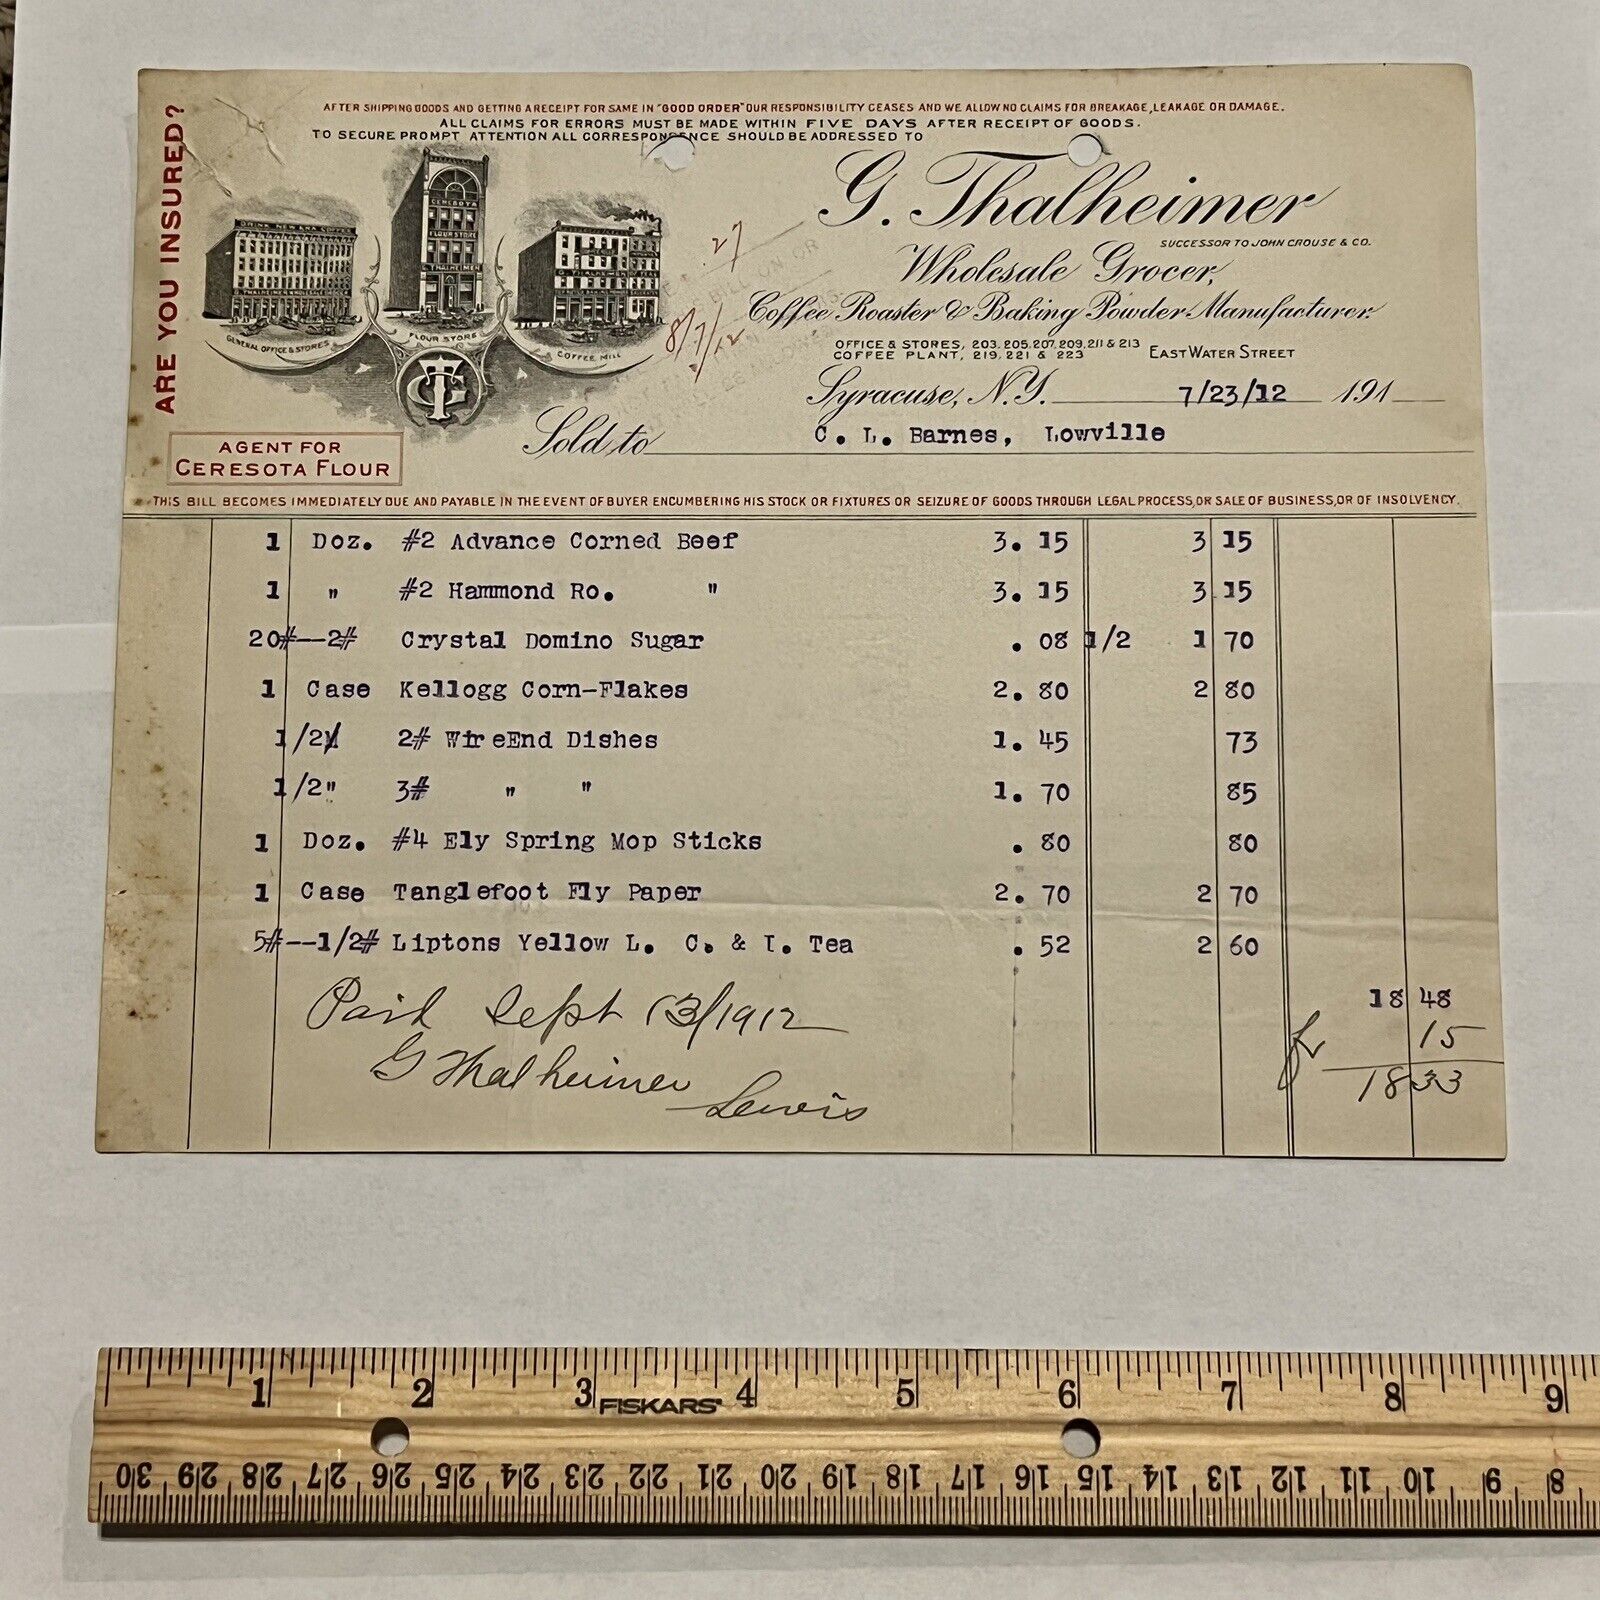 ARE YOU INSURED?
AFTER SHIPPING GOODS AND GETTING A RECEIPT FOR SAME IN "GOOD ORDER" OUR RESPONSIBILITY CEASES AND WE ALLOW NO CLAIMS FOR BREAKAGE, LEAKAGE OR DAMAGE.
ALL CLAIMS FOR ERRORS MUST BE MADE WITHIN FIVE DAYS AFTER RECEIPT OF GOODS.
TO SECURE PROMPT ATTENTION ALL CORRESPONDENCE SHOULD BE ADDRESSED TO
G. Thalheimer
SUCCESSOR TO JOHN CROUSE & CO.
Wholesale Grocer,
Coffee Roaster & Baking Powder Manufacturer.
OFFICE & STORES, 203, 205, 207, 209, 211 & 213
COFFEE PLANT, 219, 221 & 223 EAST WATER STREET
CERESOTA
FLOUR STORE
G. THALHEIMER
GENERAL OFFICE & STORES
FLOUR STORE
COFFEE MILL
27
8/7/12
Syracuse, N.Y. 7/23/12 191
Sold to C. L. Barnes, Lowville
AGENT FOR
CERESOTA FLOUR
THIS BILL BECOMES IMMEDIATELY DUE AND PAYABLE IN THE EVENT OF BUYER ENCUMBERING HIS STOCK OR FIXTURES OR SEIZURE OF GOODS THROUGH LEGAL PROCESS, OR SALE OF BUSINESS, OR OF INSOLVENCY.
1 Doz. #2 Advance Corned Beef 3. 15 3 15
1 " #2 Hammond Ro. " 3. 15 3 15
20#--2# Crystal Domino Sugar . 08 1/2 1 70
1 Case Kellogg Corn-Flakes 2. 80 2 80
1/2M 2# WireEnd Dishes 1. 45 73
1/2" 3# " " 1. 70 85
1 Doz. #4 Ely Spring Mop Sticks . 80 80
1 Case Tanglefoot Fly Paper 2. 70 2 70
5#--1/2# Liptons Yellow L. C. & I. Tea . 52 2 60
18 48
15
1833
Paid Sept 13/1912
G Thalheimer
Lewis
1 2 3 FISKARS 4 5 6 7 8 9
30 29 28 27 26 25 24 23 22 21 20 19 18 17 16 15 14 13 12 11 10 9 8